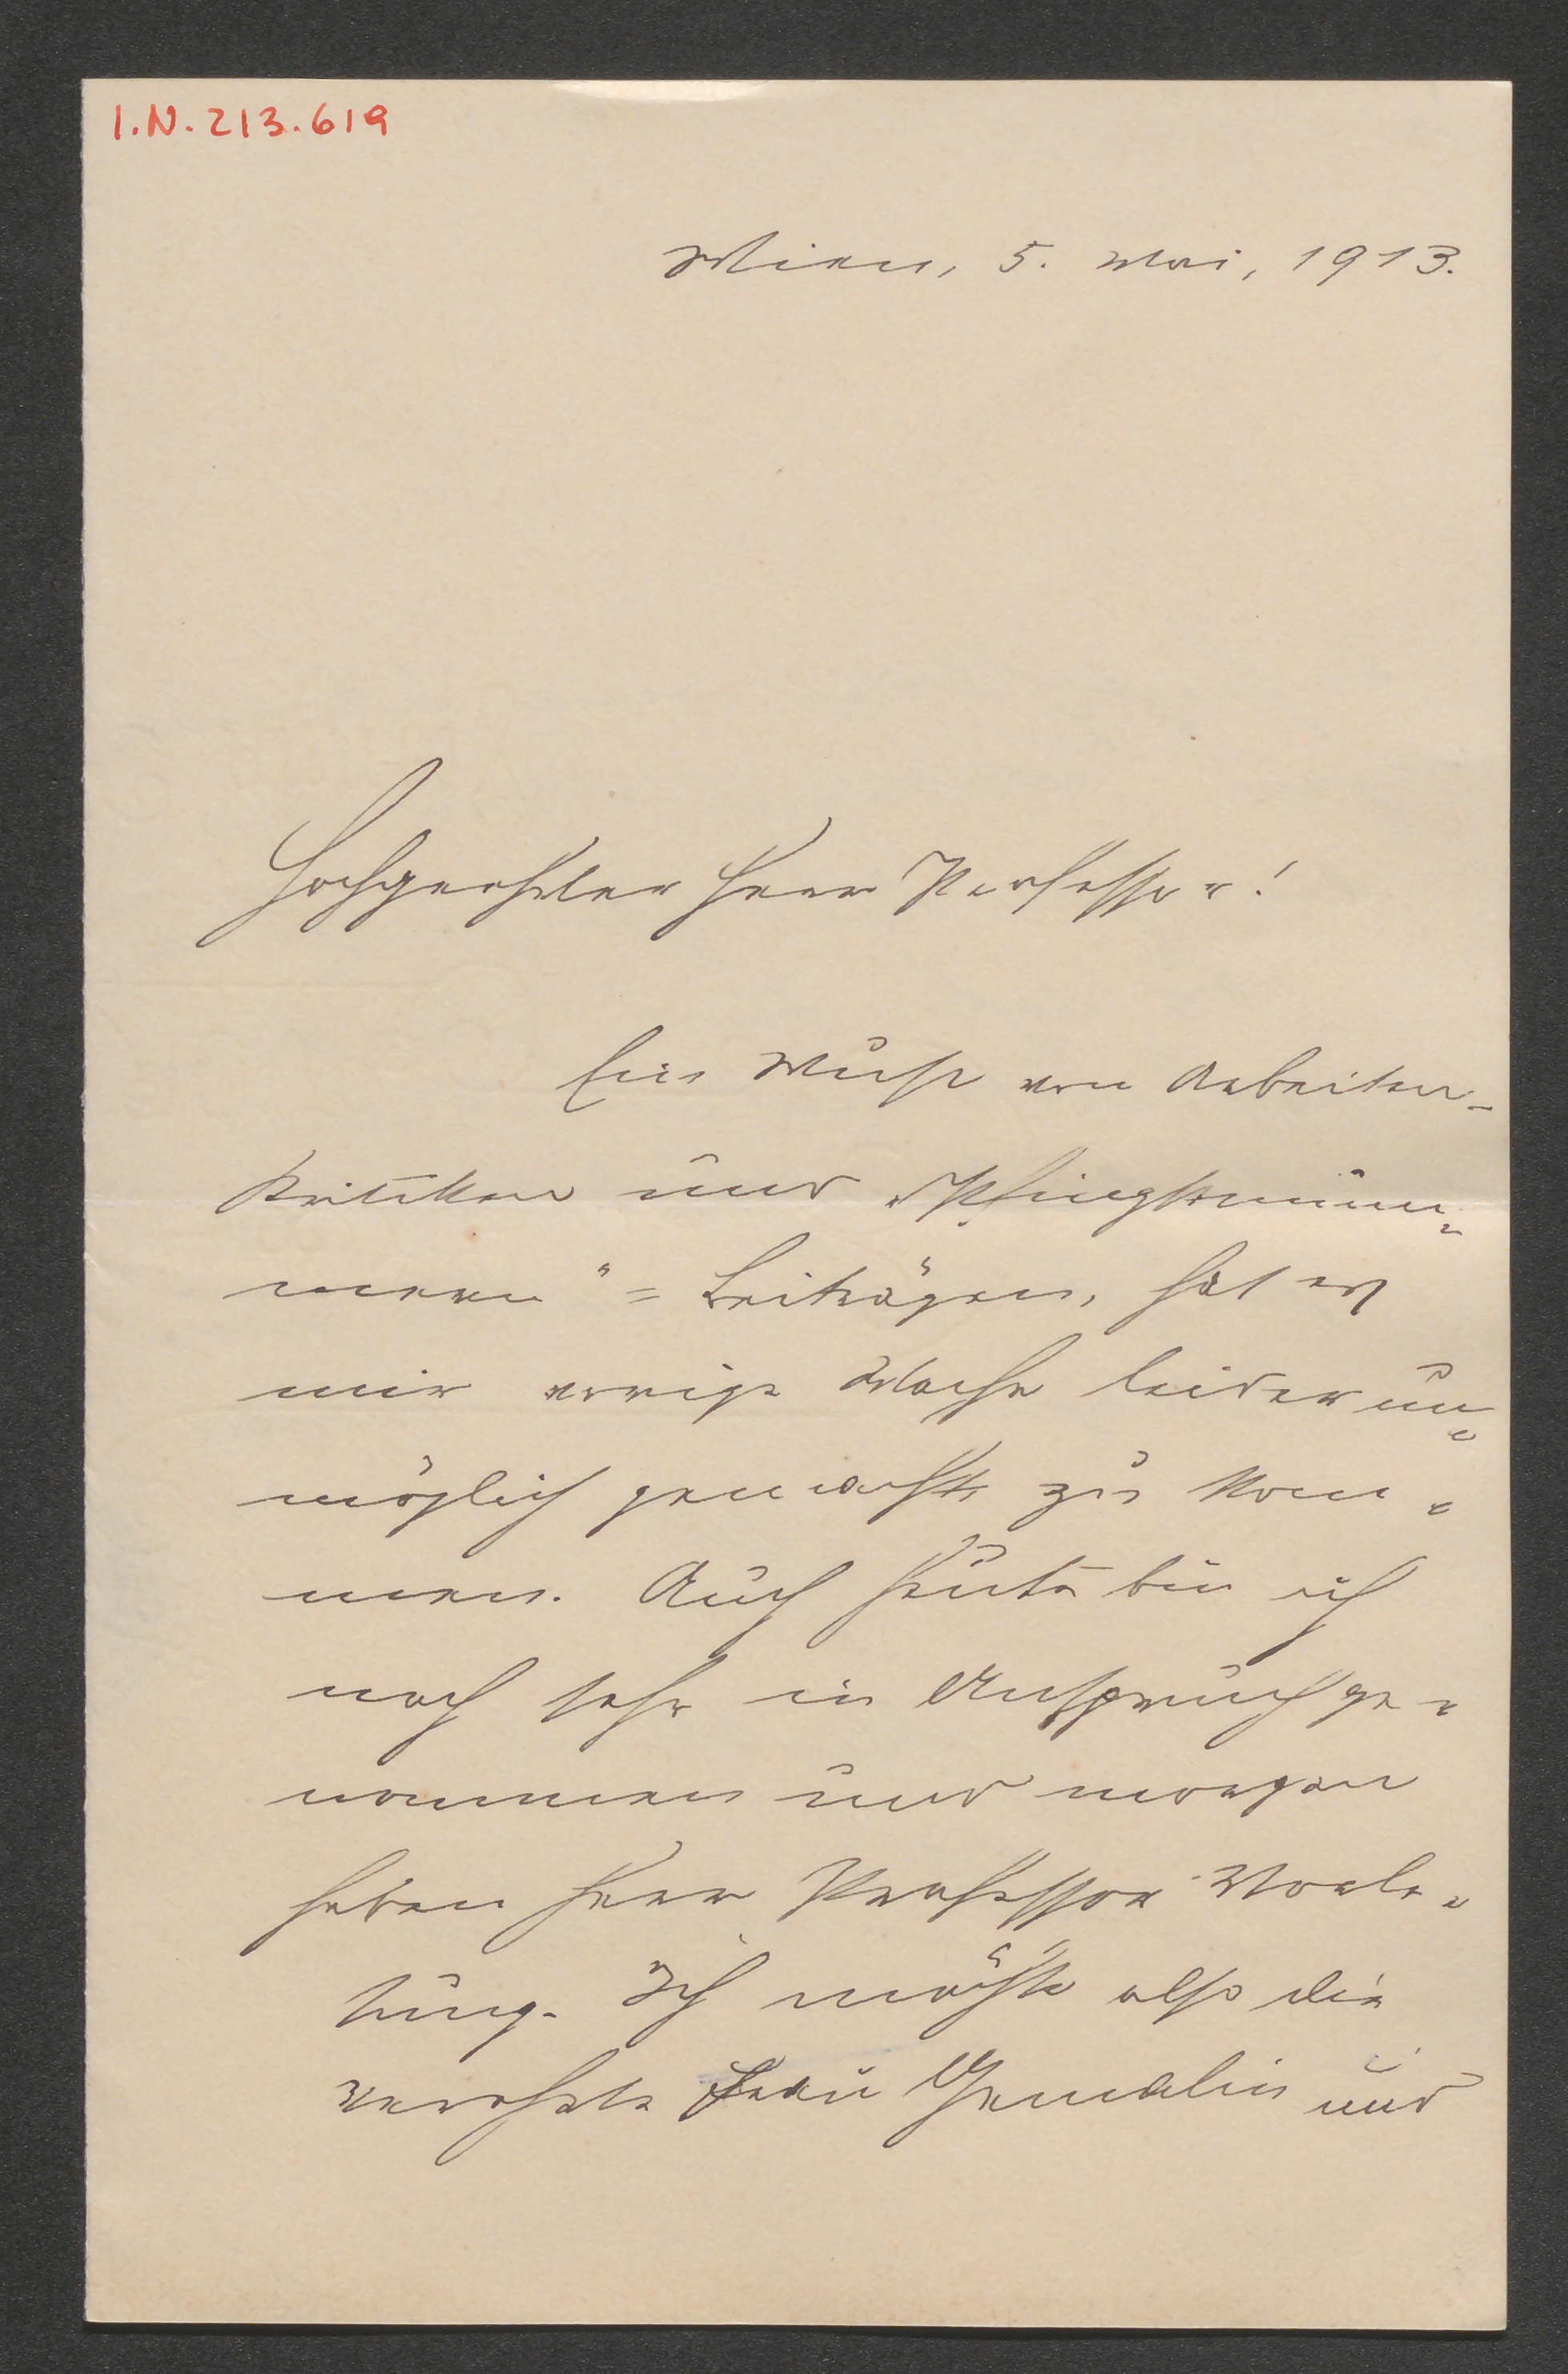 I.N. 213.619
Wien, 5. Mai, 1913.
Hochgeehrter Herr Professor!
Ein Wust von Arbeiten-
Kritiken und „Pfingstnum-
mern"= Beiträgen, hat es
mir vorige Woche leider un-
möglich gemacht, zu kom-
men. Auch heute bin ich
noch sehr in Anspruch ge-
nommen und morgen
haben Herr Professor Vorle-
sung. Ich möchte also die
verehrte Frau Gemalin und